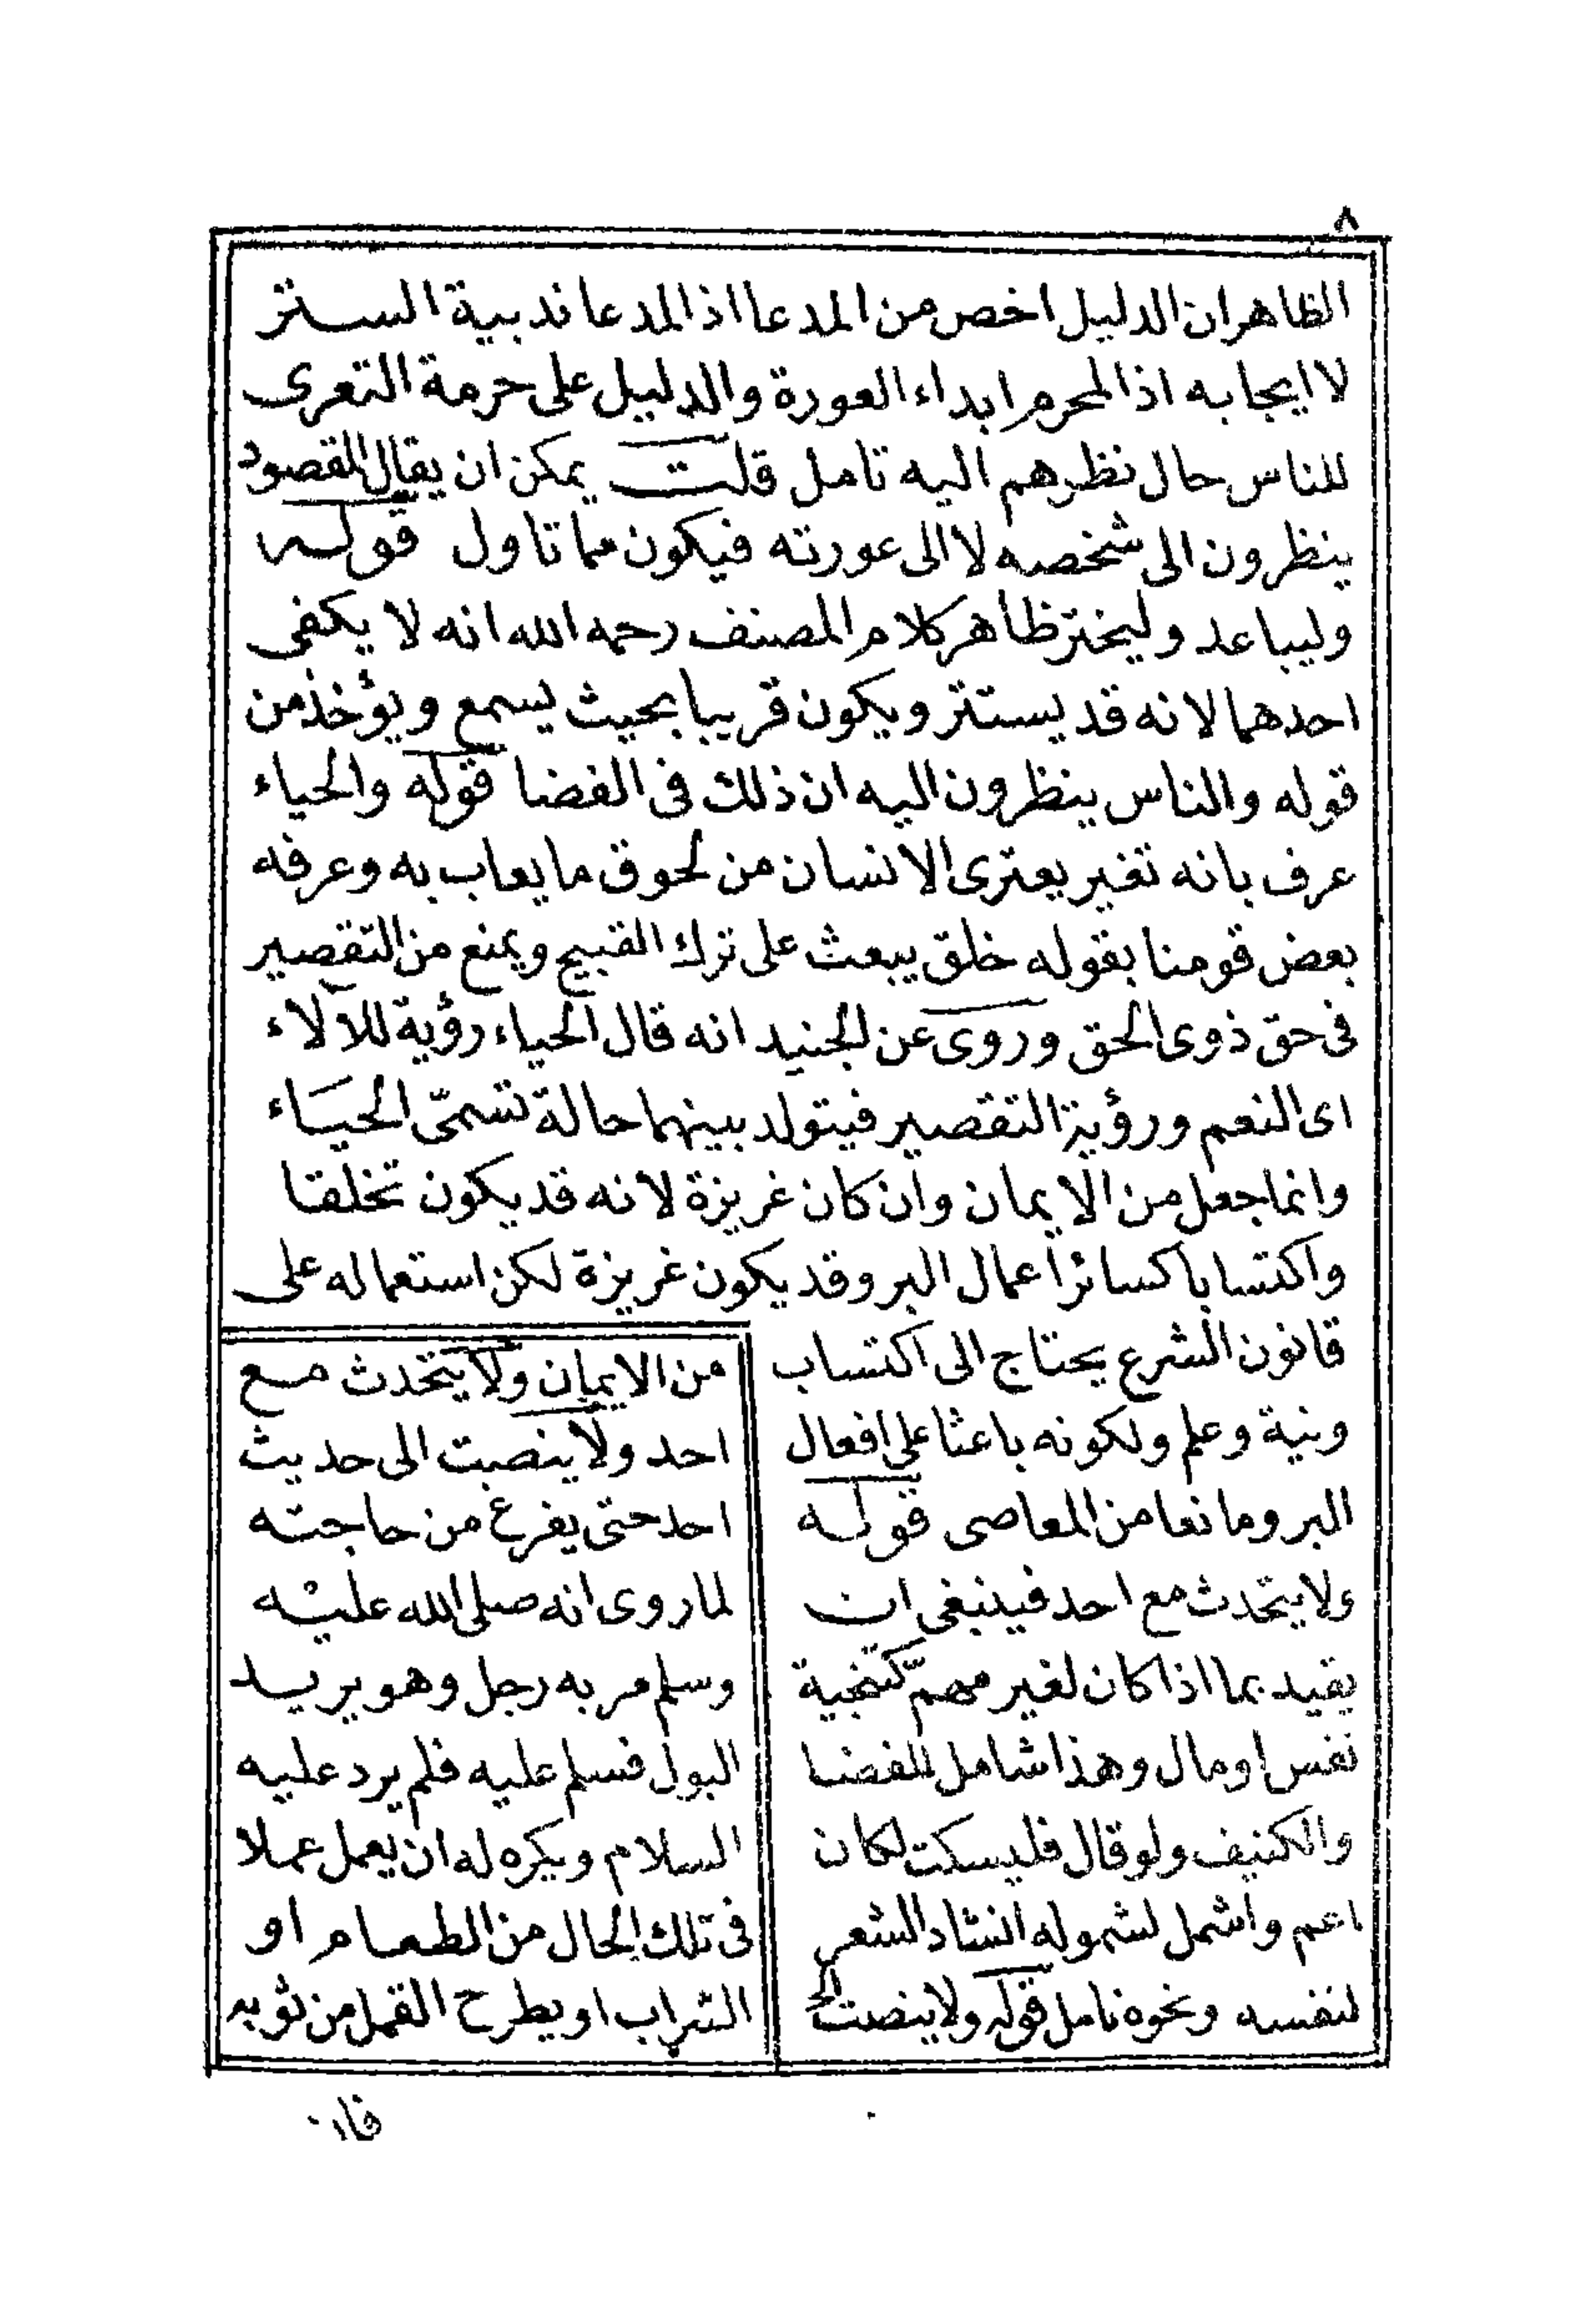 ٨
الظاهر ان الدليل اخص من المدعا اذ المدعا ندبية الستر
لا ايجابه اذ المحرم ابداء العورة والدليل على حرمة التعرى
للناس حال نظرهم اليه تامل قلت يمكن ان يقال المقصود
ينظرون الى شخصه لا الى عورته فيكون مما تاول قوله
وليباعد وليختر ظاهر كلام المصنف رحمه الله انه لا يكفى
احدهما لانه قد يستتر ويكون قريبا بحيث يسمع ويؤخذ من
قوله والناس ينظرون اليه ان ذلك فى الفضا قوله والحياء
عرف بانه تغير يعترى الانسان من لحوق ما يعاب به وعرفه
بعض قومنا بقوله خلق يبعث على ترك القبيح ويمنع من التقصير
فى حق ذوى الحق وروى عن الجنيد انه قال الحياء رؤية للآلاء
اى النعم ورؤية التقصير فيتولد بينهما حالة تسمّى الحيَاء
وانما جعل من الايمان وان كان غريزة لانه قد يكون تخلقا
واكتسابا كسائر اعمال البر وقد يكون غريزة لكن استعماله على
قانون الشرع يحتاج الى اكتساب
ونية وعلم ولكونه باعثا على افعال
البر ومانعا من المعاصى قوله
ولا يتحدث مع احد فينبغى ان
يقيد بما اذا كان لغير مهمّ كتنجية
نفس او مال وهذا شامل للفضا
والكنيف ولو قال فليسكت لكان
اعم واشمل لشموله انشاد الشعر
لنفسه ونحوه تامل قوله ولا ينصت الخ
من الايمان ولا يتحدث مع
احد ولا ينصت الى حديث
احد حتى يفرغ من حاجته
لما روى انه صلى الله عليه
وسلم مر به رجل وهو يريد
البول فسلم عليه فلم يرد عليه
السلام ويكره له ان يعمل عملا
فى تلك الحال من الطعام او
الشراب او يطرح القمل من ثوبه